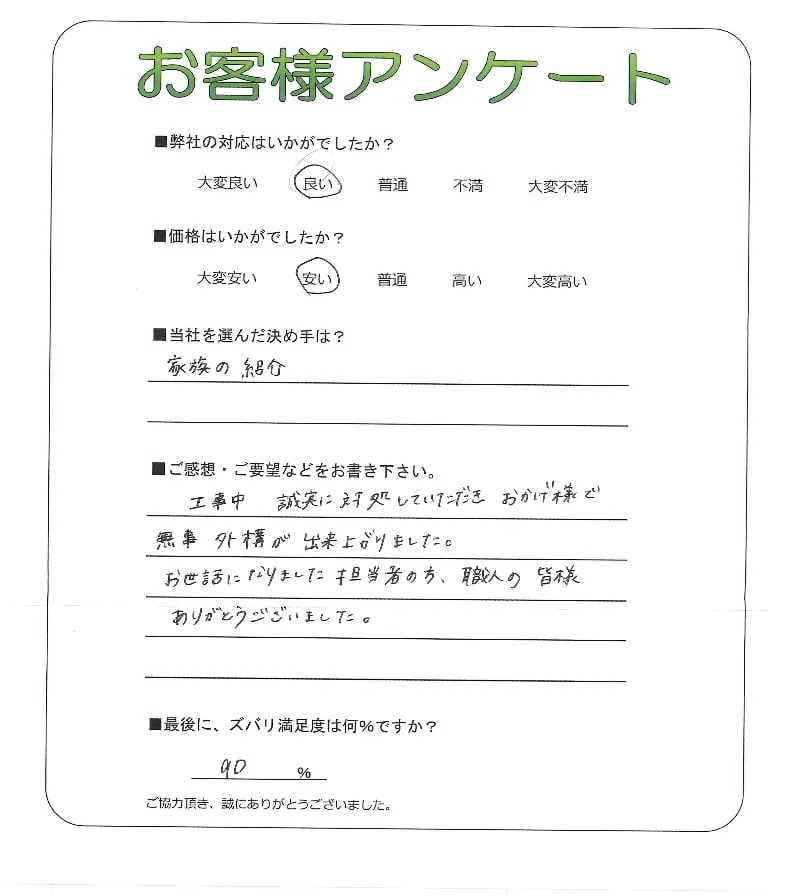 お客様アンケート
■弊社の対応はいかがでしたか？
大変良い 良い 普通 不満 大変不満
■価格はいかがでしたか？
大変安い 安い 普通 高い 大変高い
■当社を選んだ決め手は？
家族の紹介
■ご感想・ご要望などをお書き下さい。
工事中 誠実に対処していただき おかげ様で
無事 外構が出来上がりました。
お世話になりました担当者の方、職人の皆様
ありがとうございました。
■最後に、ズバリ満足度は何％ですか？
90 ％
ご協力頂き、誠にありがとうございました。